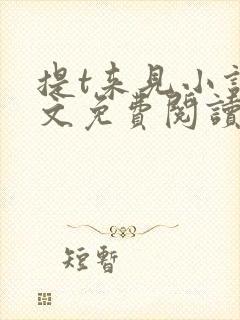 提t来見小説
文免費閱讀
短暫